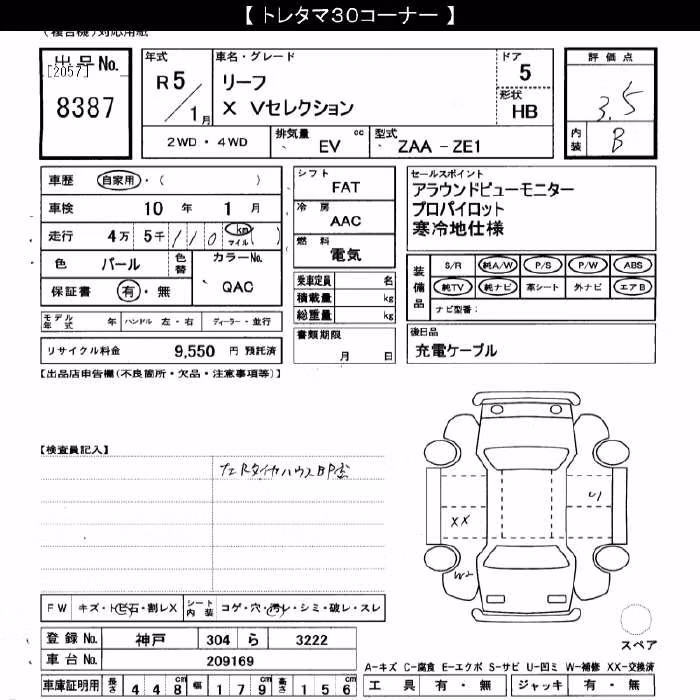 【 トレタマ30コーナー 】
(複合機)対応用紙
出品No.
[2057]
8387
年式
R 5
1月
車名・グレード
リーフ
X Vセレクション
ドア
5
形状
HB
2WD・4WD
排気量 cc
EV
型式
ZAA - ZE1
評価点
3.5
内装
B
車歴 自家用・( )
車検 10年 1月
走行 4万 5千 110 km マイル ( )
色 パール 色替
カラーNo.
QAC
保証書 有・無
シフト
FAT
冷房
AAC
燃料
電気
セールスポイント
アラウンドビューモニター
プロパイロット
寒冷地仕様
乗車定員 名
積載量 kg
総重量 kg
書類期限
月 日
装備品
S/R 純A/W P/S P/W ABS
純TV 純ナビ 革シート 外ナビ エアB
ナビ型番:
モデル年式 年 ハンドル 左・右 ディーラー・並行
リサイクル料金 9,550 円 預託済
後日品
充電ケーブル
【出品店申告欄(不良箇所・欠品・注意事項等)】
【検査員記入】
XX
U1
W2
FW キズ・トビ石・割レX
シート内装 コゲ・穴・汚レ・シミ・破レ・スレ
登録No. 神戸 304 ら 3222
車台No. 209169
スペア
A-キズ C-腐食 E-エクボ S-サビ U-凹ミ W-補修 XX-交換済
車庫証明用 長さ 448cm 幅 179cm 高さ 156cm
工具 有・無 ジャッキ 有・無